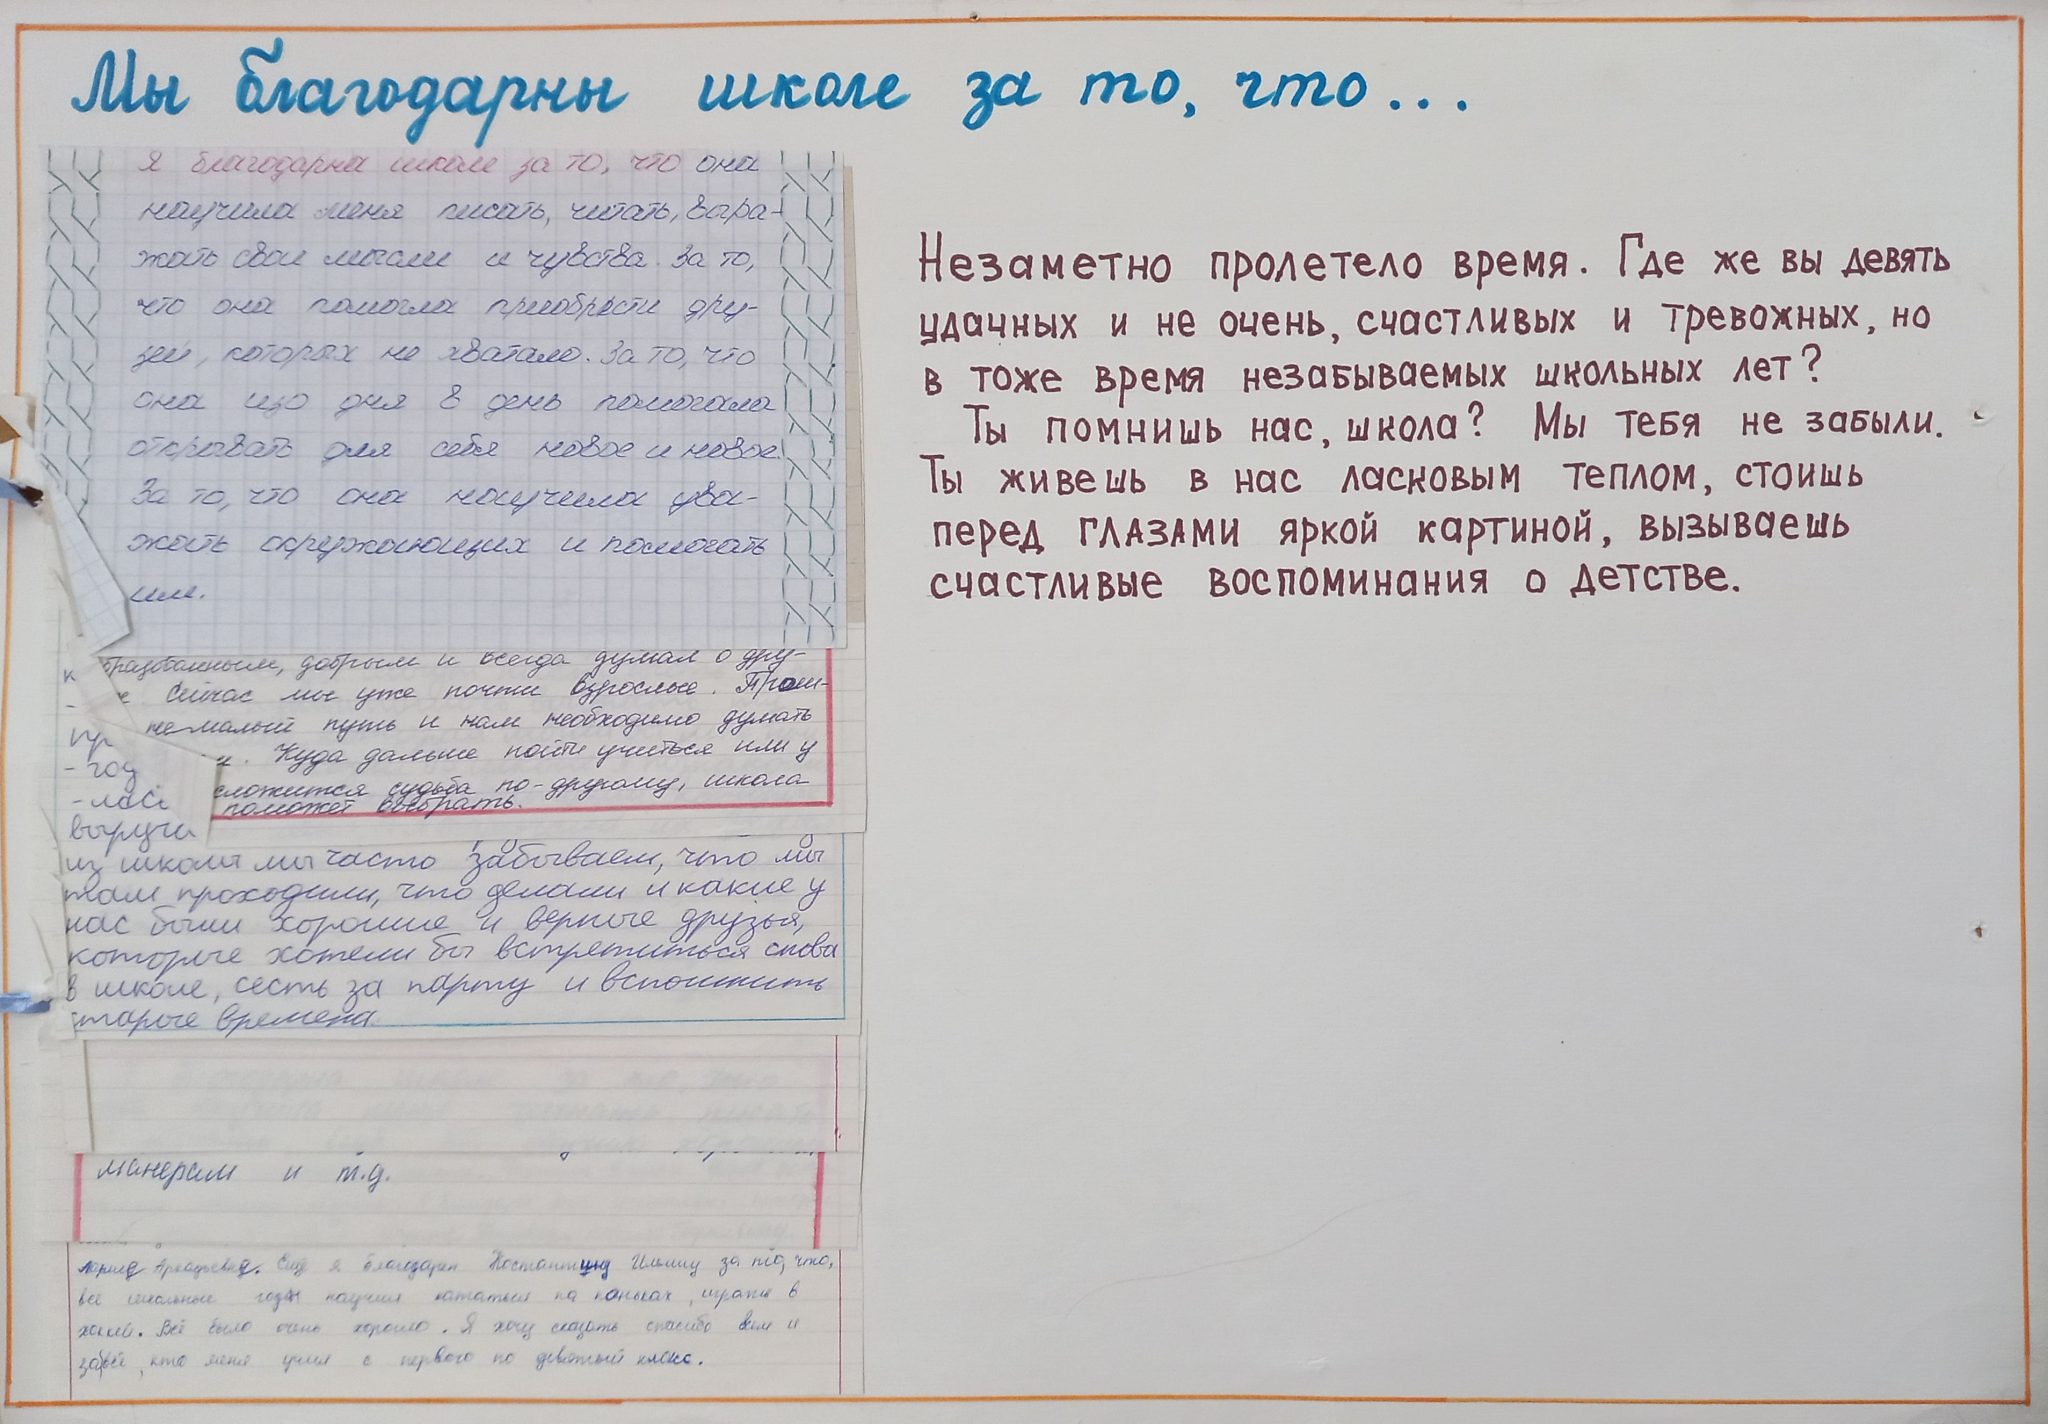 Мы благодарны школе за то, что...
Я благодарна школе за то, что она
научила меня писать, читать, выра-
жать свои мысли и чувства. За то,
что она помогла приобрести дру-
зей, которых не хватало. За то, что
она изо дня в день помогала
открывать для себя новое и новое.
За то, что она научила ува-
жать окружающих и помогать
им.
образованным, добрым и всегда думал о дру-
Сейчас мы уже почти взрослые.
немалый путь и нам необходимо думать
Куда дальше пойти учиться или у
сложится судьба по-другому, школа
поможет выбрать.
- год
из школы мы часто забываем, что мы
там проходили, что делали и какие у
нас были хорошие и верные друзья,
которые хотели бы встретиться снова
в школе, сесть за парту и вспомнить
старые времена.
манерам и т.д.
Ещё я благодарен Ильичу за то, что,
все школьные годы научил кататься на коньках, играть в
хоккей. Всё было очень хорошо. Я хочу сказать спасибо всем и
кто меня учил с первого по девятый класс.
Незаметно пролетело время. Где же вы девять
удачных и не очень, счастливых и тревожных, но
в тоже время незабываемых школьных лет?
Ты помнишь нас, школа? Мы тебя не забыли.
Ты живешь в нас ласковым теплом, стоишь
перед глазами яркой картиной, вызываешь
счастливые воспоминания о детстве.